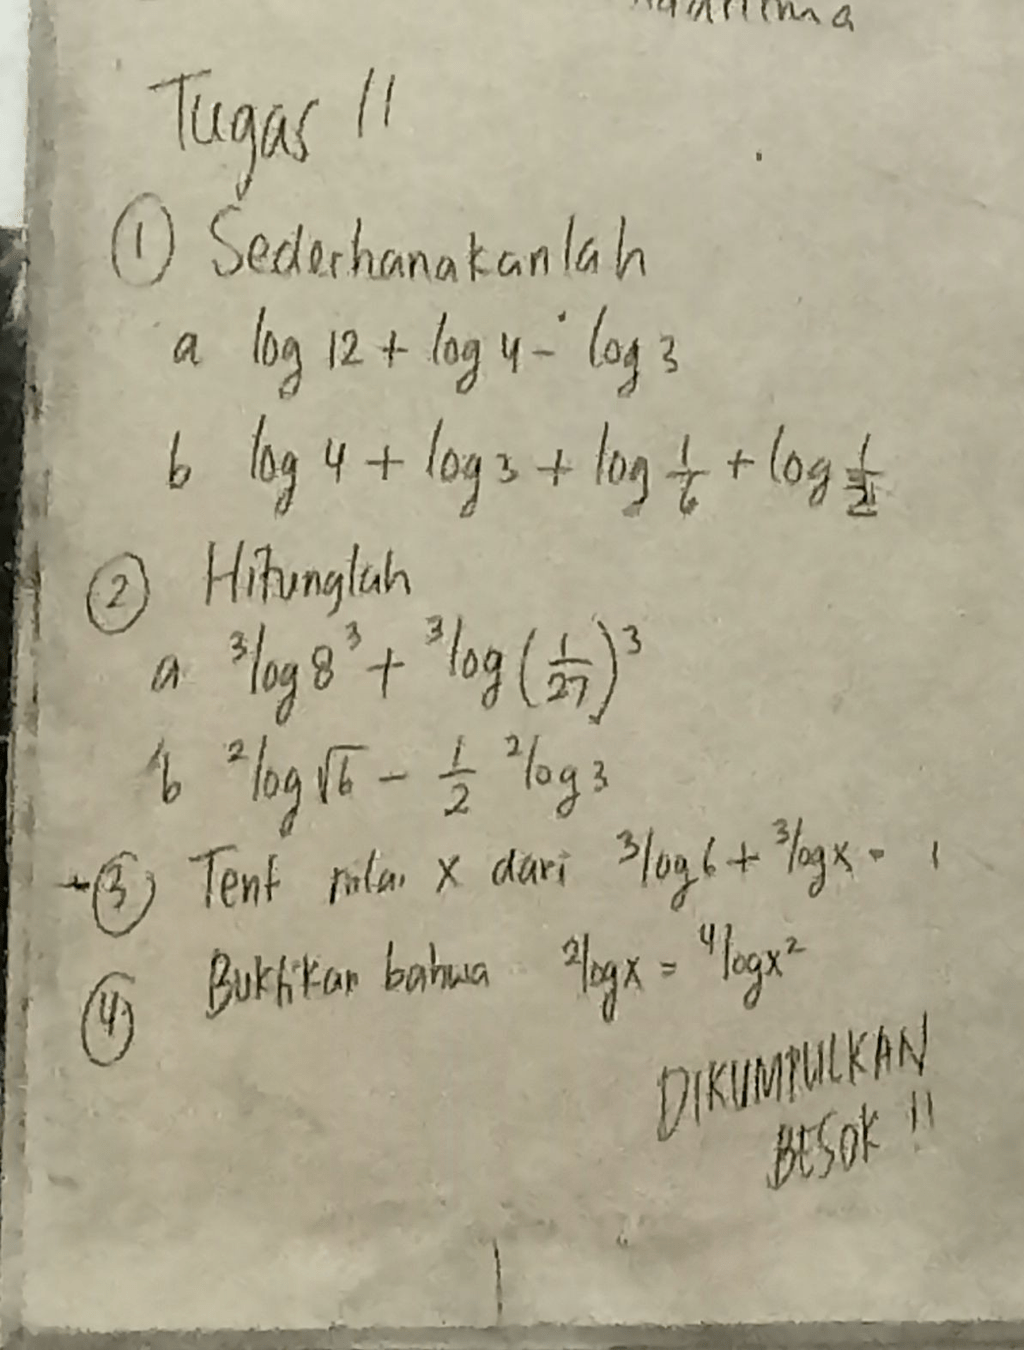 Tugas !!
① Sederhanakanlah
a log 12 + log 4 - log 3
b log 4 + log 3 + log 1/6 + log 1/2
② Hitunglah
a ³log 8³ + ³log (1/27)³
b ²log √6 - 1/2 ²log 3
③ Tent nilai x dari ³log 6 + ³log x = 1
④ Buktikan bahwa ²log x = ⁴log x²
DIKUMPULKAN
BESOK !!